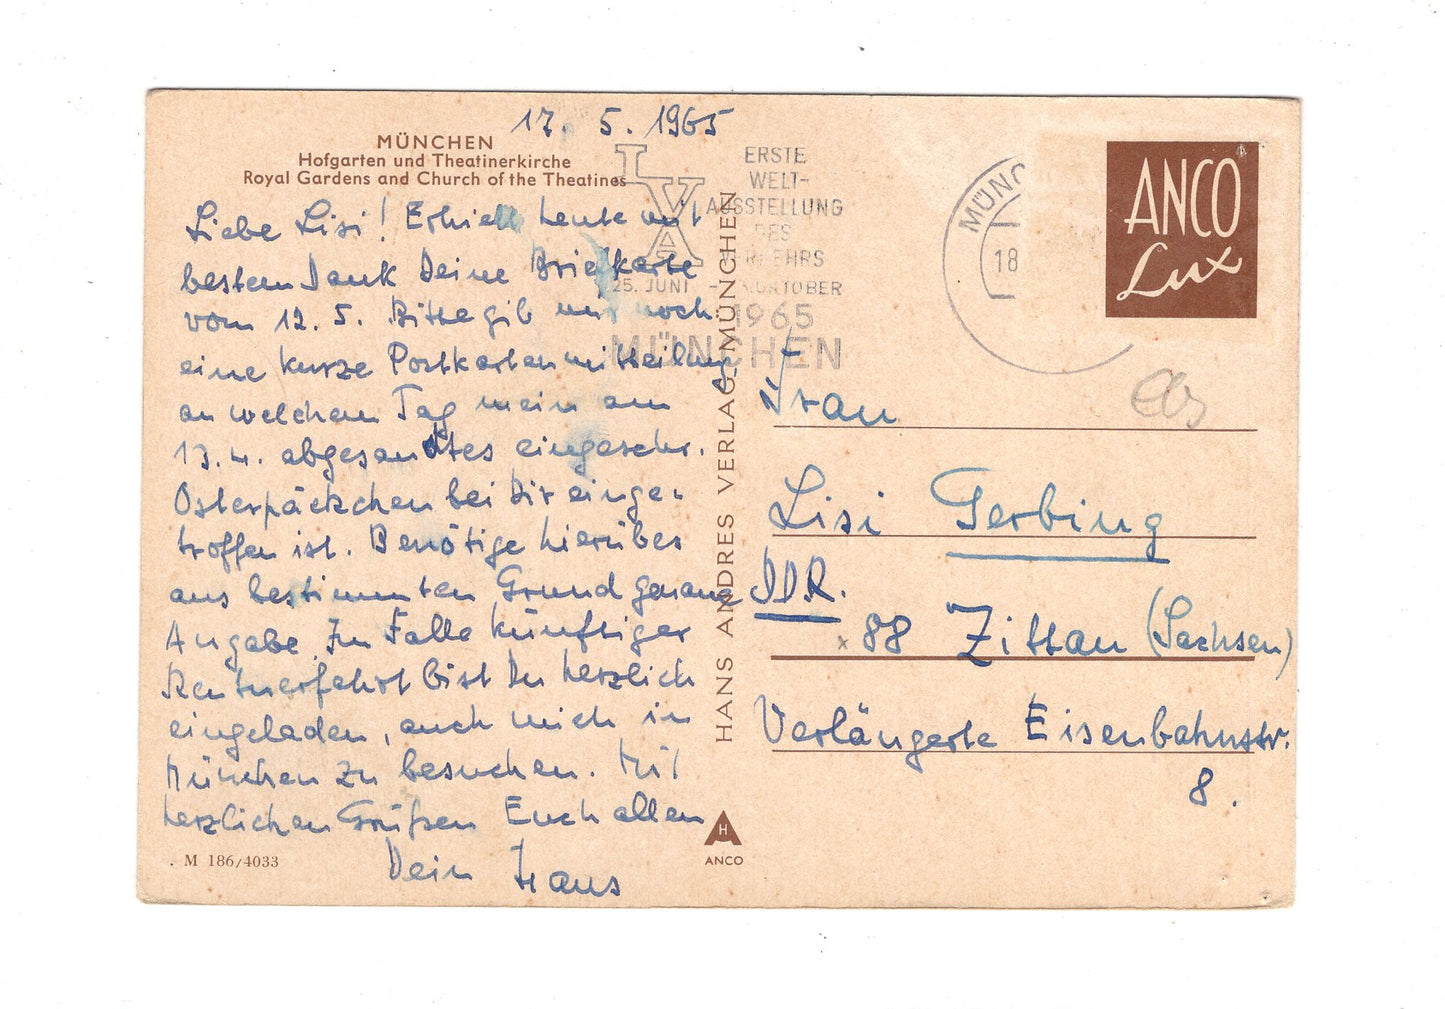 17. 5. 1965
MÜNCHEN
Hofgarten und Theatinerkirche
Royal Gardens and Church of the Theatines
Liebe Lisi! Erhielt heute mit
bestem Dank Deine Briefkarte
vom 12. 5. Bitte gib mir noch
eine kurze Postkartenmitteilung
an welchem Tag mein am
13.4. abgesandtes eingeschr.
Osterpäckchen bei Dir einge-
troffen ist. Benötige hierüber
aus bestimmten Grund genaue
Angabe. Im Falle künftiger
Rentnerfahrt bist Du herzlich
eingeladen, auch mich in
München zu besuchen. Mit
herzlichen Grüßen Euch allen
Dein Hans
. M 186/4033
HANS ANDRES VERLAG MÜNCHEN
H
ANCO
IVA
ERSTE
WELT-
AUSSTELLUNG
DES
VERKEHRS
25. JUNI - OKTOBER
1965
MÜNCHEN
MÜNC
18
ANCO
Lux
Frau
Lisi Gerbing
DDR.
x 88 Zittau (Sachsen)
Verlängerte Eisenbahnstr.
8.